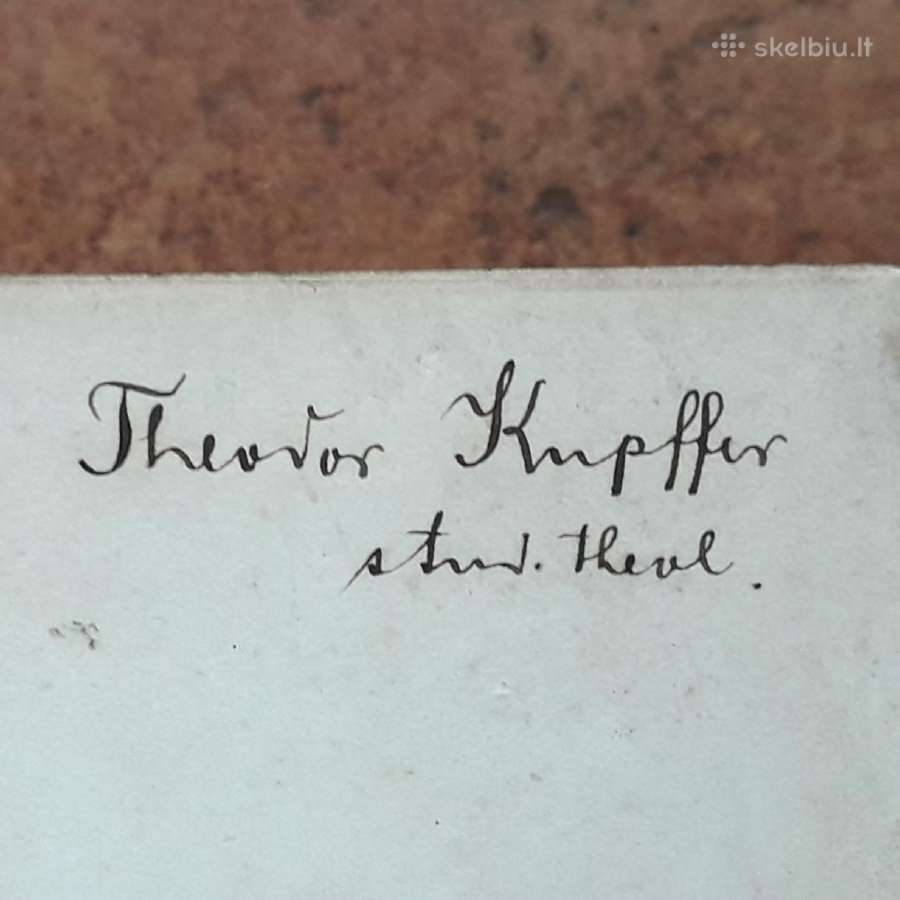 skelbiu.lt
Theodor Kupffer
stud. theol.